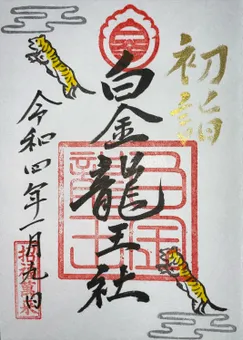 初詣
白金龍王社
令和四年一月九日